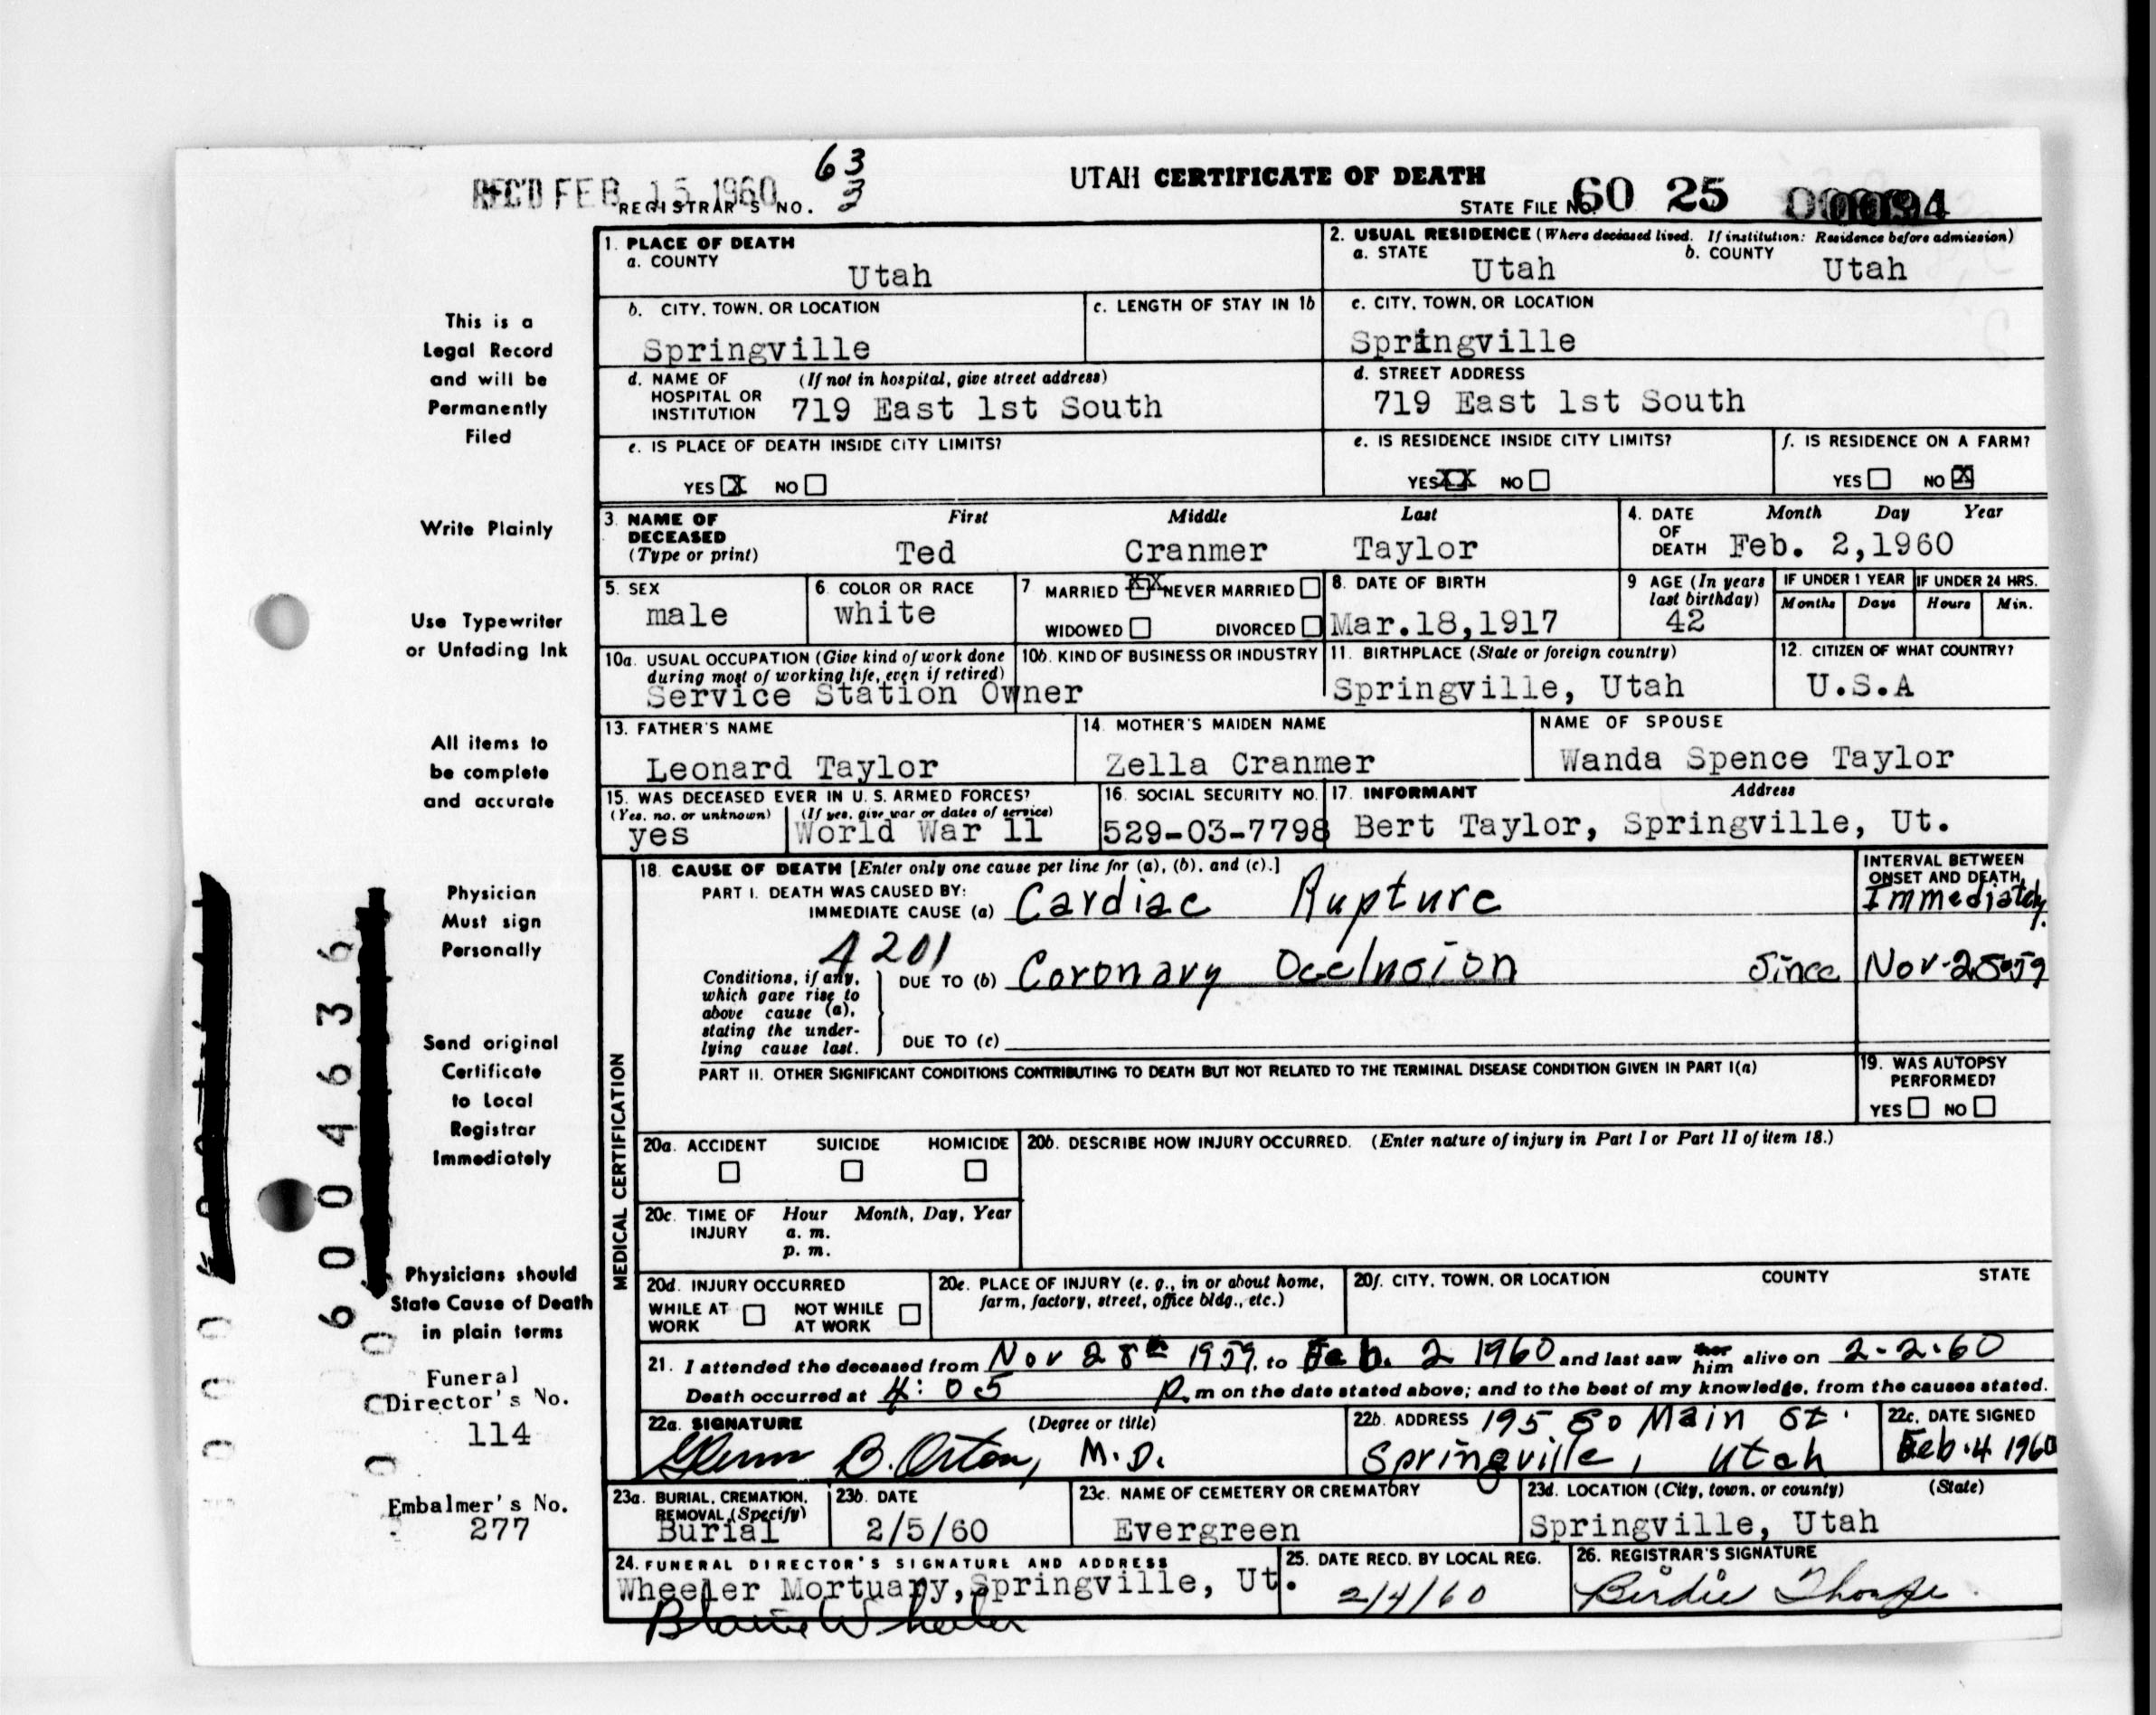 63
REC'D FEB 15 1960 REGISTRAR'S NO. 3
UTAH CERTIFICATE OF DEATH
STATE FILE NO. 60 25
1. PLACE OF DEATH
a. COUNTY
Utah
2. USUAL RESIDENCE (Where deceased lived. If institution: Residence before admission)
a. STATE b. COUNTY
Utah Utah
b. CITY, TOWN, OR LOCATION
Springville
c. LENGTH OF STAY IN 1b
c. CITY, TOWN, OR LOCATION
Springville
d. NAME OF HOSPITAL OR INSTITUTION (If not in hospital, give street address)
719 East 1st South
d. STREET ADDRESS
719 East 1st South
e. IS PLACE OF DEATH INSIDE CITY LIMITS?
YES X NO
e. IS RESIDENCE INSIDE CITY LIMITS?
YES XX NO
f. IS RESIDENCE ON A FARM?
YES NO X
3. NAME OF DECEASED (Type or print)
First Middle Last
Ted Cranmer Taylor
4. DATE OF DEATH Month Day Year
Feb. 2,1960
5. SEX
male
6. COLOR OR RACE
white
7 MARRIED XX NEVER MARRIED
WIDOWED DIVORCED
8. DATE OF BIRTH
Mar.18,1917
9 AGE (In years last birthday)
42
IF UNDER 1 YEAR IF UNDER 24 HRS.
Months Days Hours Min.
10a. USUAL OCCUPATION (Give kind of work done during most of working life, even if retired)
Service Station Owner
10b. KIND OF BUSINESS OR INDUSTRY
11. BIRTHPLACE (State or foreign country)
Springville, Utah
12. CITIZEN OF WHAT COUNTRY?
U.S.A
13. FATHER'S NAME
Leonard Taylor
14. MOTHER'S MAIDEN NAME
Zella Cranmer
NAME OF SPOUSE
Wanda Spence Taylor
15. WAS DECEASED EVER IN U. S. ARMED FORCES?
(Yes, no, or unknown) (If yes, give war or dates of service)
yes World War 11
16. SOCIAL SECURITY NO.
529-03-7798
17. INFORMANT Address
Bert Taylor, Springville, Ut.
MEDICAL CERTIFICATION
18. CAUSE OF DEATH [Enter only one cause per line for (a), (b), and (c).]
INTERVAL BETWEEN ONSET AND DEATH
PART I. DEATH WAS CAUSED BY:
IMMEDIATE CAUSE (a) Cardiac Rupture Immediately.
4201
Conditions, if any, which gave rise to above cause (a), stating the underlying cause last.
DUE TO (b) Coronary Occlusion Since Nov-28-59
DUE TO (c)
PART II. OTHER SIGNIFICANT CONDITIONS CONTRIBUTING TO DEATH BUT NOT RELATED TO THE TERMINAL DISEASE CONDITION GIVEN IN PART I(a)
19. WAS AUTOPSY PERFORMED?
YES NO
20a. ACCIDENT SUICIDE HOMICIDE
20b. DESCRIBE HOW INJURY OCCURRED. (Enter nature of injury in Part I or Part II of item 18.)
20c. TIME OF INJURY Hour Month, Day, Year
a. m.
p. m.
20d. INJURY OCCURRED
WHILE AT WORK NOT WHILE AT WORK
20e. PLACE OF INJURY (e. g., in or about home, farm, factory, street, office bldg., etc.)
20f. CITY, TOWN, OR LOCATION COUNTY STATE
21. I attended the deceased from Nov 28th 1959, to Feb. 2 1960 and last saw her him alive on 2-2-60
Death occurred at 4:05 P. m on the date stated above; and to the best of my knowledge, from the causes stated.
22a. SIGNATURE (Degree or title)
Glenn B. Orton, M.D.
22b. ADDRESS 195 So Main St.
Springville, Utah
22c. DATE SIGNED
Feb. 4 1960
23a. BURIAL, CREMATION, REMOVAL (Specify)
Burial
23b. DATE
2/5/60
23c. NAME OF CEMETERY OR CREMATORY
Evergreen
23d. LOCATION (City, town, or county) (State)
Springville, Utah
24. FUNERAL DIRECTOR'S SIGNATURE AND ADDRESS
Wheeler Mortuary, Springville, Ut.
Blaine Wheeler
25. DATE RECD. BY LOCAL REG.
2/4/60
26. REGISTRAR'S SIGNATURE
Birdie Thorpe
This is a
Legal Record
and will be
Permanently
Filed
Write Plainly
Use Typewriter
or Unfading Ink
All items to
be complete
and accurate
Physician
Must sign
Personally
Send original
Certificate
to Local
Registrar
Immediately
Physicians should
State Cause of Death
in plain terms
Funeral
Director's No.
114
Embalmer's No.
277
6004636